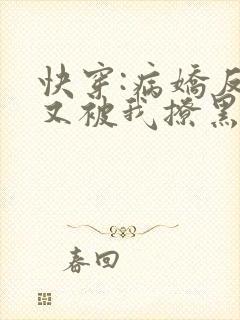 快穿:病娇反
又被我撩黑
春回